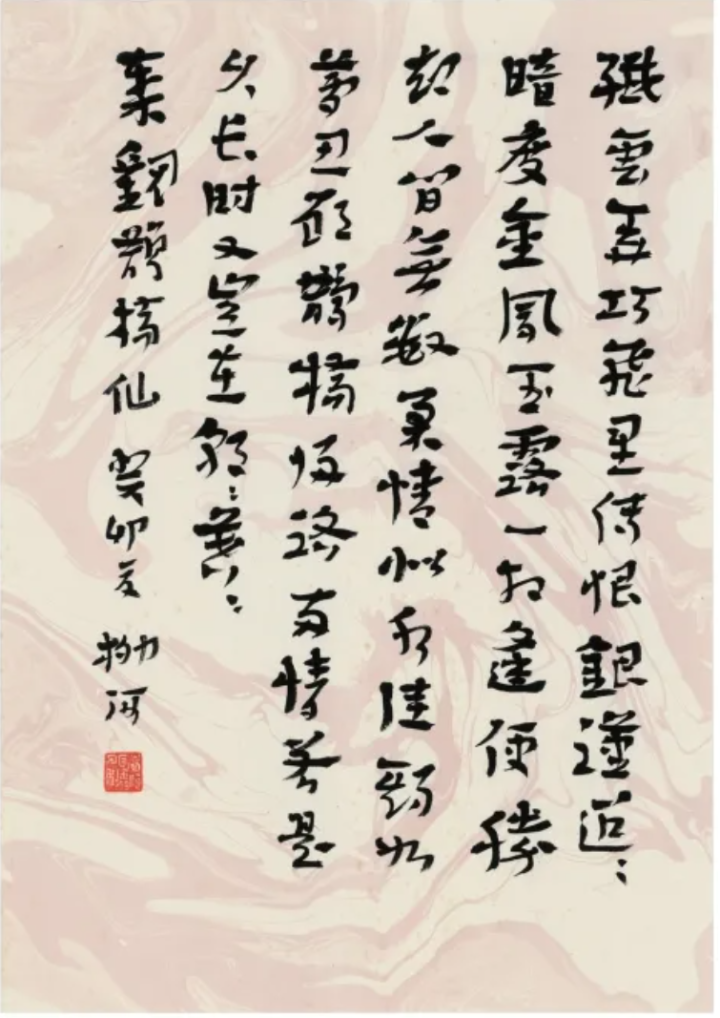 纖雲弄巧飛星传恨銀漢迢〻
暗度金風玉露一相逢便勝
却人间無數柔情似水佳期如
夢忍顧鵲橋歸路两情若是
久长时又豈在朝〻暮〻
秦觀鵲橋仙 癸卯夏